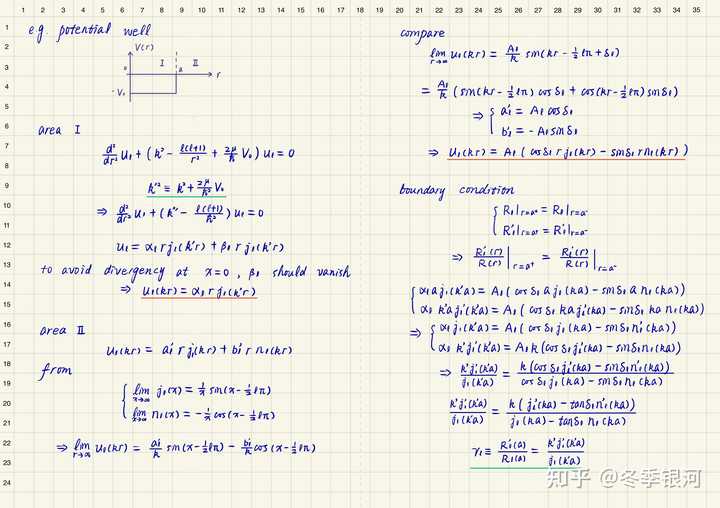 1 2 3 4 5 6 7 8 9 10 11 12 13 14 15 16 17 18 19 20 21 22 23 24 25 26 27 28 29 30 31 32 33 34 35
1 2 3 4 5 6 7 8 9 10 11 12 13 14 15 16 17 18 19 20 21 22 23 24
e.g. potential well
V(r)
0 I a II r
-V₀
area I
d²/dr² u_l + (k² - l(l+1)/r² + 2μ/ħ V₀) u_l = 0
k'² ≡ k² + 2μ/ħ² V₀
⇒ d²/dr² u_l + (k'² - l(l+1)/ħ²) u_l = 0
u_l = α_l r j_l(k'r) + β_l r j_l(k'r)
to avoid divergency at x=0, β_l should vanish
⇒ u_l(kr) = α_l r j_l(k'r)
area II
u_l(kr) = a_l' r j_l(kr) + b_l' r n_l(kr)
from
{ lim x→∞ j_l(x) = 1/x sin(x - ½lπ)
lim x→∞ n_l(x) = -1/x cos(x - ½lπ)
⇒ lim r→∞ u_l(kr) = a_l'/k sin(x - ½lπ) - b_l'/k cos(x - ½lπ)
compare
lim r→∞ u_l(kr) = A_l/k sin(kr - ½lπ + δ_l)
= A_l/k (sin(kr - ½lπ) cosδ_l + cos(kr - ½lπ) sinδ_l)
⇒ { a_l' = A_l cosδ_l
b_l' = -A_l sinδ_l
⇒ u_l(kr) = A_l (cosδ_l r j_l(kr) - sinδ_l r n_l(kr))
boundary condition
{ R_l|r=a⁺ = R_l|r=a⁻
R_l'|r=a⁺ = R_l'|r=a⁻
⇒ R_l'(r)/R(r) |r=a⁺ = R_l'(r)/R(r) |r=a⁻
{ α_l a j_l(k'a) = A_l (cosδ_l a j_l(ka) - sinδ_l a n_l(ka))
α_l k'a j_l'(k'a) = A_l (cosδ_l ka j_l'(ka) - sinδ_l ka n_l'(ka))
⇒ { α_l j_l(k'a) = A_l (cosδ_l j_l(ka) - sinδ_l n_l(ka))
α_l k' j_l'(k'a) = A_l k (cosδ_l j_l'(ka) - sinδ_l n_l'(ka))
⇒ k' j_l'(k'a)/j_l(k'a) = k (cosδ_l j_l'(ka) - sinδ_l n_l'(ka))/cosδ_l j_l(ka) - sinδ_l n_l(ka)
k' j_l'(k'a)/j_l(k'a) = k (j_l'(ka) - tanδ_l n_l'(ka))/j_l(ka) - tanδ_l n_l(ka)
γ_l ≡ R_l'(a)/R_l(a) = k' j_l'(k'a)/j_l(k'a)
知乎 @冬季银河